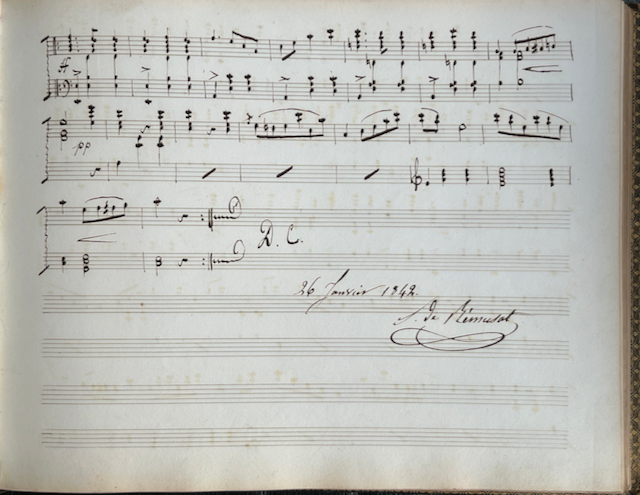 ff
pp
D. C.
26 Janvier 1842.
de Rémusat